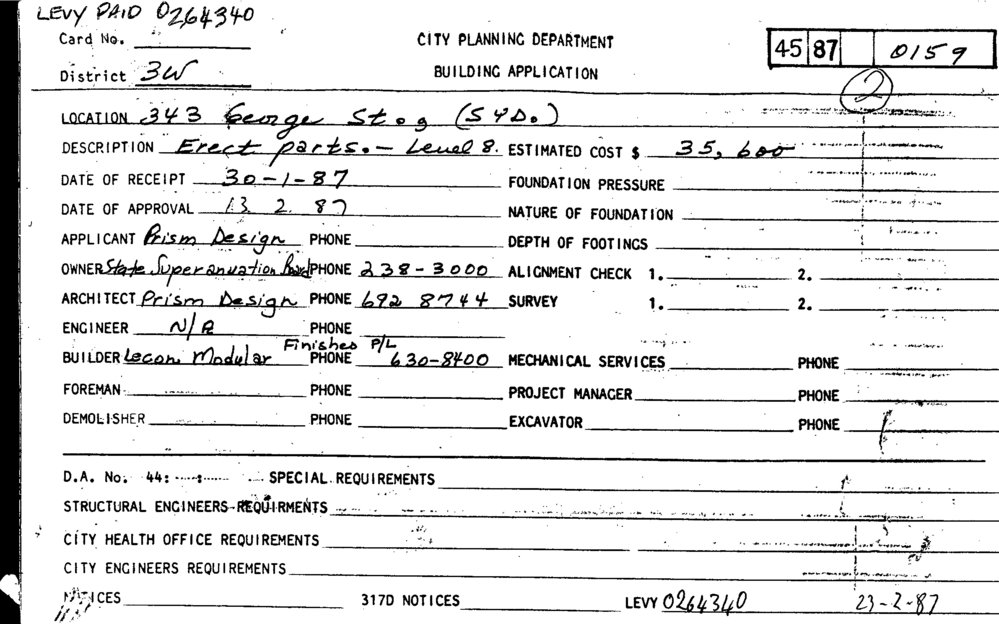 LEVY PAID 0264340
Card No.
CITY PLANNING DEPARTMENT
45 87 0159
District 3W
BUILDING APPLICATION
2
LOCATION 343 George St. (SYD.)
DESCRIPTION Erect parts. - Level 8. ESTIMATED COST $ 35,600
DATE OF RECEIPT 30-1-87 FOUNDATION PRESSURE
DATE OF APPROVAL 13. 2. 87 NATURE OF FOUNDATION
APPLICANT Prism Design PHONE DEPTH OF FOOTINGS
OWNER State Superannuation Board PHONE 238-3000 ALIGNMENT CHECK 1. 2.
ARCHITECT Prism Design PHONE 692 8744 SURVEY 1. 2.
ENGINEER N/A PHONE
BUILDER Lecon Modular Finishes P/L PHONE 630-8400 MECHANICAL SERVICES PHONE
FOREMAN PHONE PROJECT MANAGER PHONE
DEMOLISHER PHONE EXCAVATOR PHONE
D.A. No. 44: : SPECIAL REQUIREMENTS
STRUCTURAL ENGINEERS REQUIRMENTS
CITY HEALTH OFFICE REQUIREMENTS
CITY ENGINEERS REQUIREMENTS
NOTICES 317D NOTICES LEVY 0264340 23-2-87